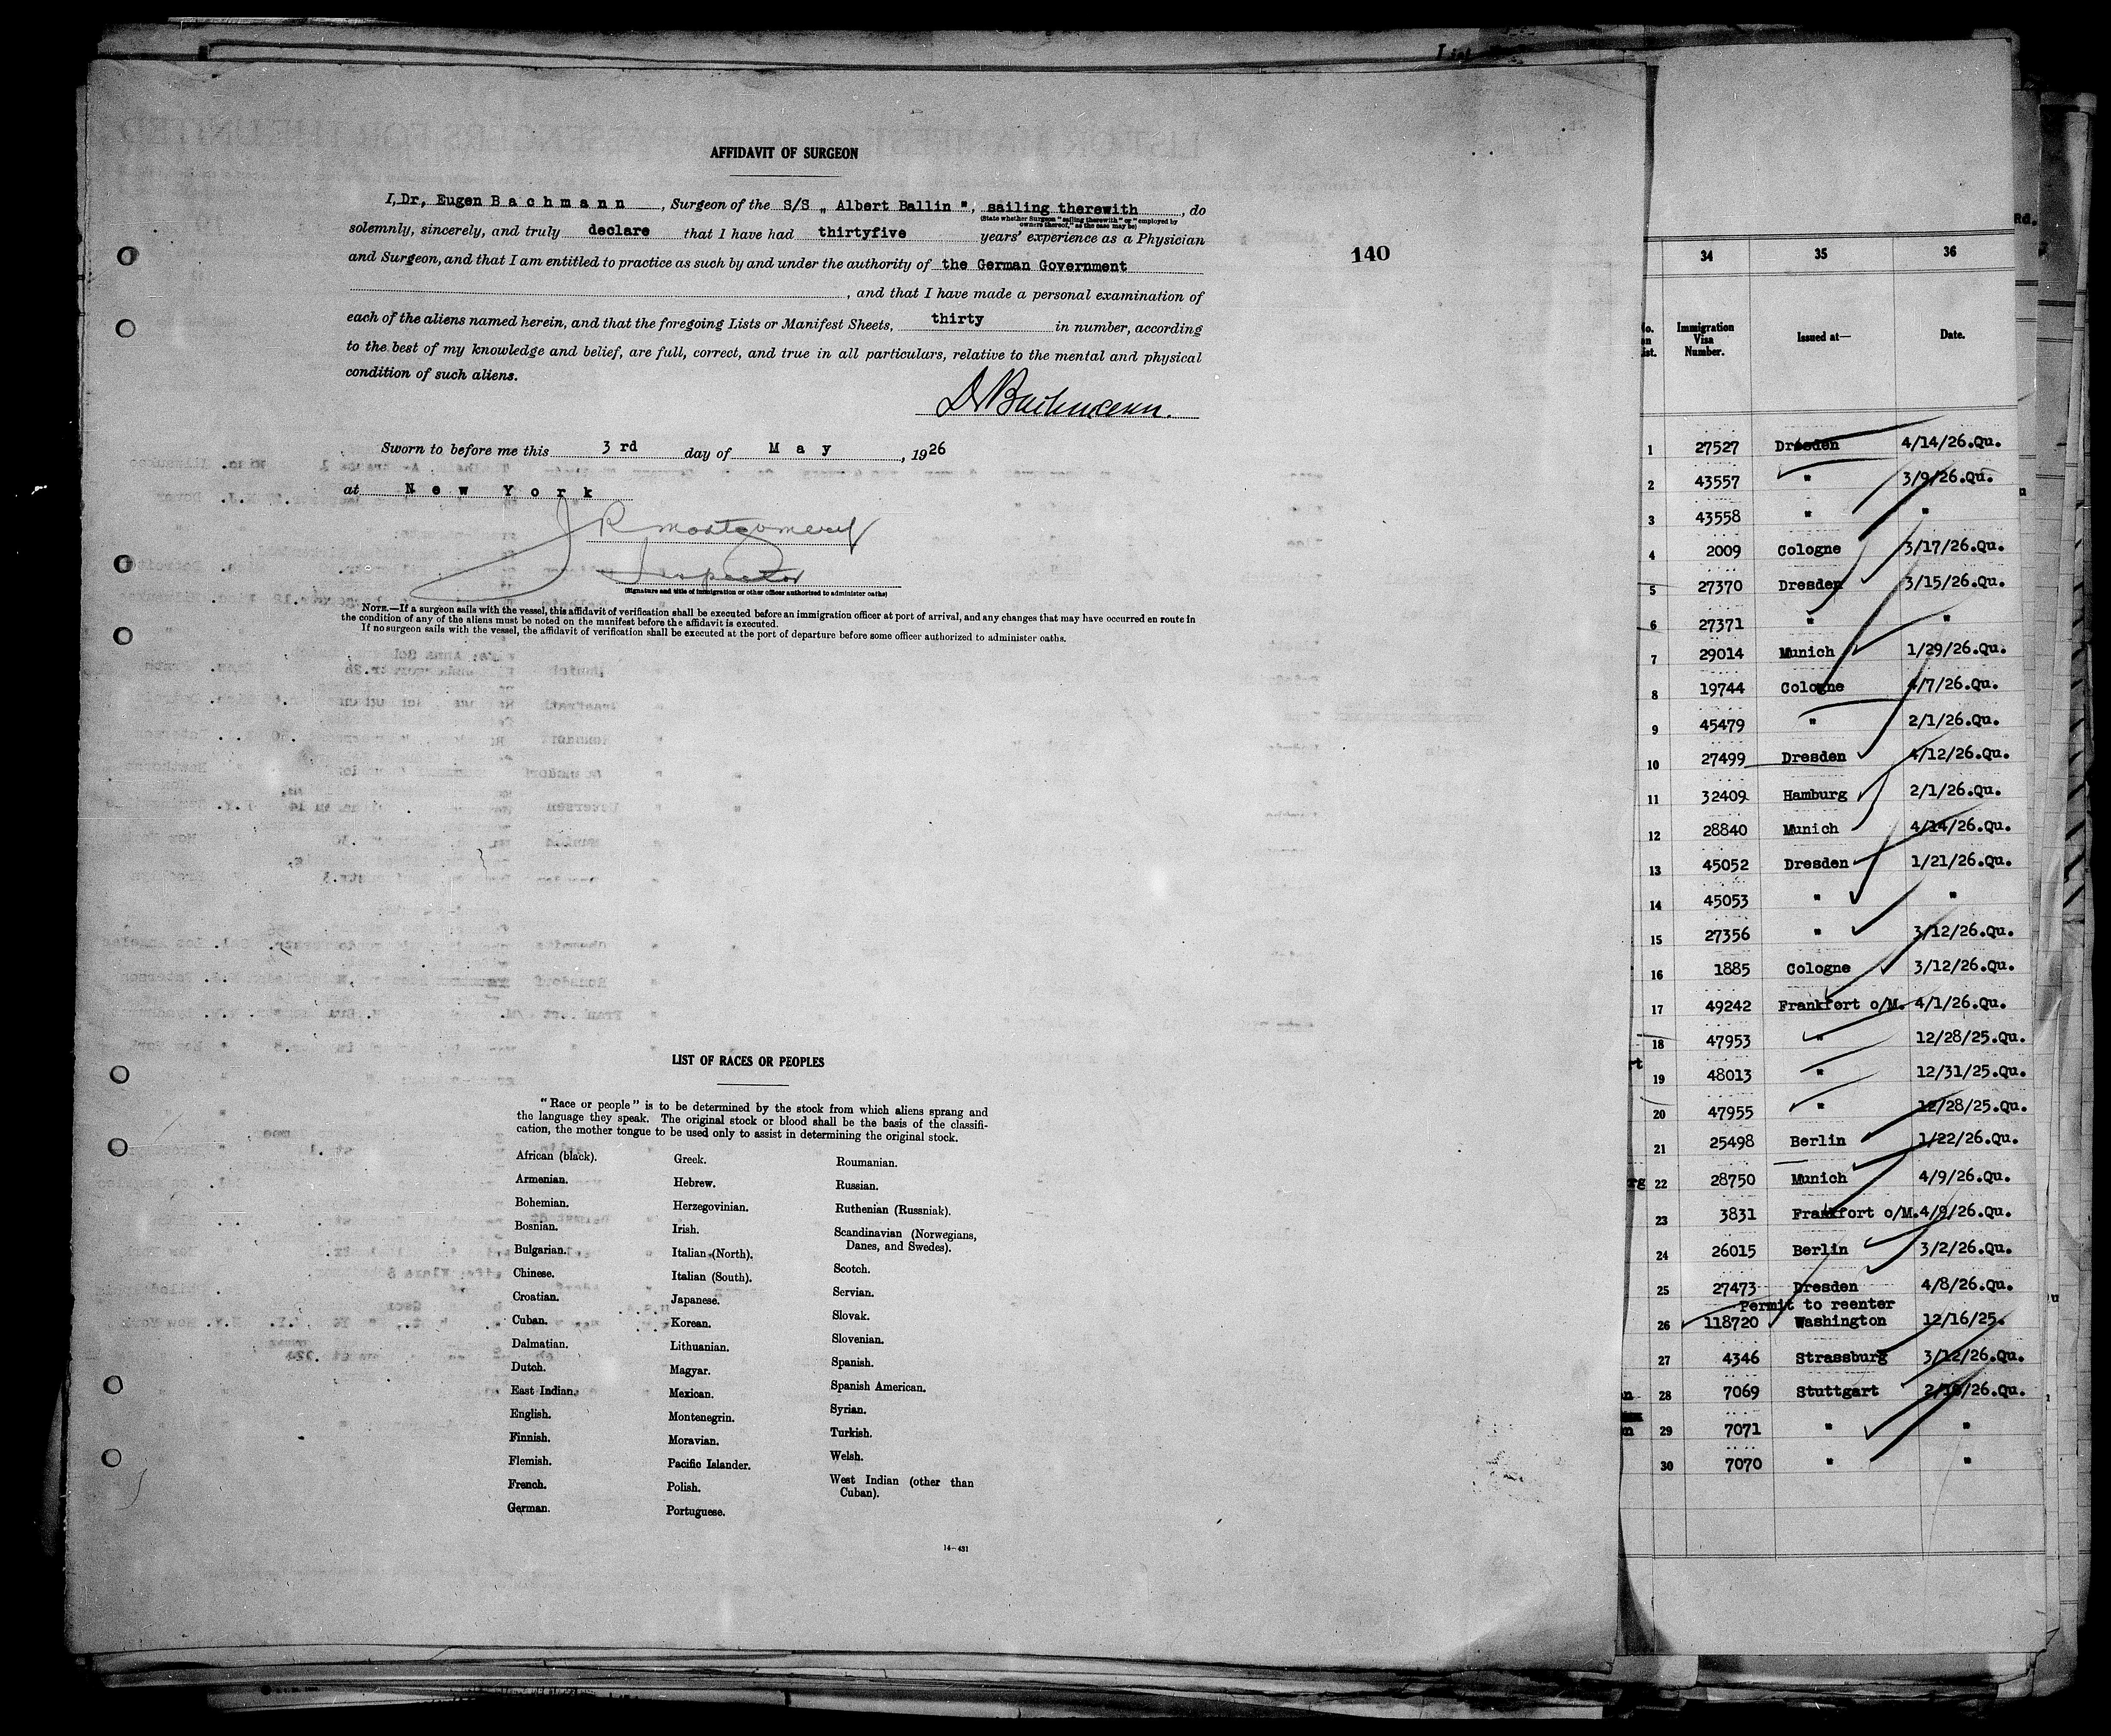 AFFIDAVIT OF SURGEON
I, Dr, Eugen B a c h m a n n , Surgeon of the S/S „ Albert Ballin ", sailing therewith , do
(State whether Surgeon "sailing therewith" or "employed by
owners thereof," as the case may be)
solemnly, sincerely, and truly declare that I have had thirtyfive years' experience as a Physician
and Surgeon, and that I am entitled to practice as such by and under the authority of the German Government
, and that I have made a personal examination of
each of the aliens named herein, and that the foregoing Lists or Manifest Sheets, thirty in number, according
to the best of my knowledge and belief, are full, correct, and true in all particulars, relative to the mental and physical
condition of such aliens.
Dr Bachmann.
Sworn to before me this 3 rd day of M a y , 1926
at N e w Y o r k
J R Montgomery
Inspector
(Signature and title of immigration or other officer authorized to administer oaths)
NOTE.—If a surgeon sails with the vessel, this affidavit of verification shall be executed before an immigration officer at port of arrival, and any changes that may have occurred en route in
the condition of any of the aliens must be noted on the manifest before the affidavit is executed.
If no surgeon sails with the vessel, the affidavit of verification shall be executed at the port of departure before some officer authorized to administer oaths.
140
LIST OF RACES OR PEOPLES
"Race or people" is to be determined by the stock from which aliens sprang and
the language they speak. The original stock or blood shall be the basis of the classifi-
cation, the mother tongue to be used only to assist in determining the original stock.
African (black).
Armenian.
Bohemian.
Bosnian.
Bulgarian.
Chinese.
Croatian.
Cuban.
Dalmatian.
Dutch.
East Indian.
English.
Finnish.
Flemish.
French.
German.
Greek.
Hebrew.
Herzegovinian.
Irish.
Italian (North).
Italian (South).
Japanese.
Korean.
Lithuanian.
Magyar.
Mexican.
Montenegrin.
Moravian.
Pacific Islander.
Polish.
Portuguese.
Roumanian.
Russian.
Ruthenian (Russniak).
Scandinavian (Norwegians,
Danes, and Swedes).
Scotch.
Servian.
Slovak.
Slovenian.
Spanish.
Spanish American.
Syrian.
Turkish.
Welsh.
West Indian (other than
Cuban).
14—431
34 35 36
Immigration Visa Number. Issued at— Date.
1 27527 Dresden 4/14/26.Qu.
2 43557 " 3/9/26.Qu.
3 43558 " "
4 2009 Cologne 3/17/26.Qu.
5 27370 Dresden 3/15/26.Qu.
6 27371 " "
7 29014 Munich 1/29/26.Qu.
8 19744 Cologne 4/7/26.Qu.
9 45479 " 2/1/26.Qu.
10 27499 Dresden 4/12/26.Qu.
11 32409 Hamburg 2/1/26.Qu.
12 28840 Munich 4/14/26.Qu.
13 45052 Dresden 1/21/26.Qu.
14 45053 " "
15 27356 " 3/12/26.Qu.
16 1885 Cologne 3/12/26.Qu.
17 49242 Frankfort o/M. 4/1/26.Qu.
18 47953 " 12/28/25.Qu.
19 48013 " 12/31/25.Qu.
20 47955 " 12/28/25.Qu.
21 25498 Berlin 1/22/26.Qu.
22 28750 Munich 4/9/26.Qu.
23 3831 Frankfort o/M. 4/9/26.Qu.
24 26015 Berlin 3/2/26.Qu.
25 27473 Dresden 4/8/26.Qu.
Permit to reenter
26 118720 Washington 12/16/25.
27 4346 Strassburg 3/12/26.Qu.
28 7069 Stuttgart
29 7071 " "
30 7070 " "